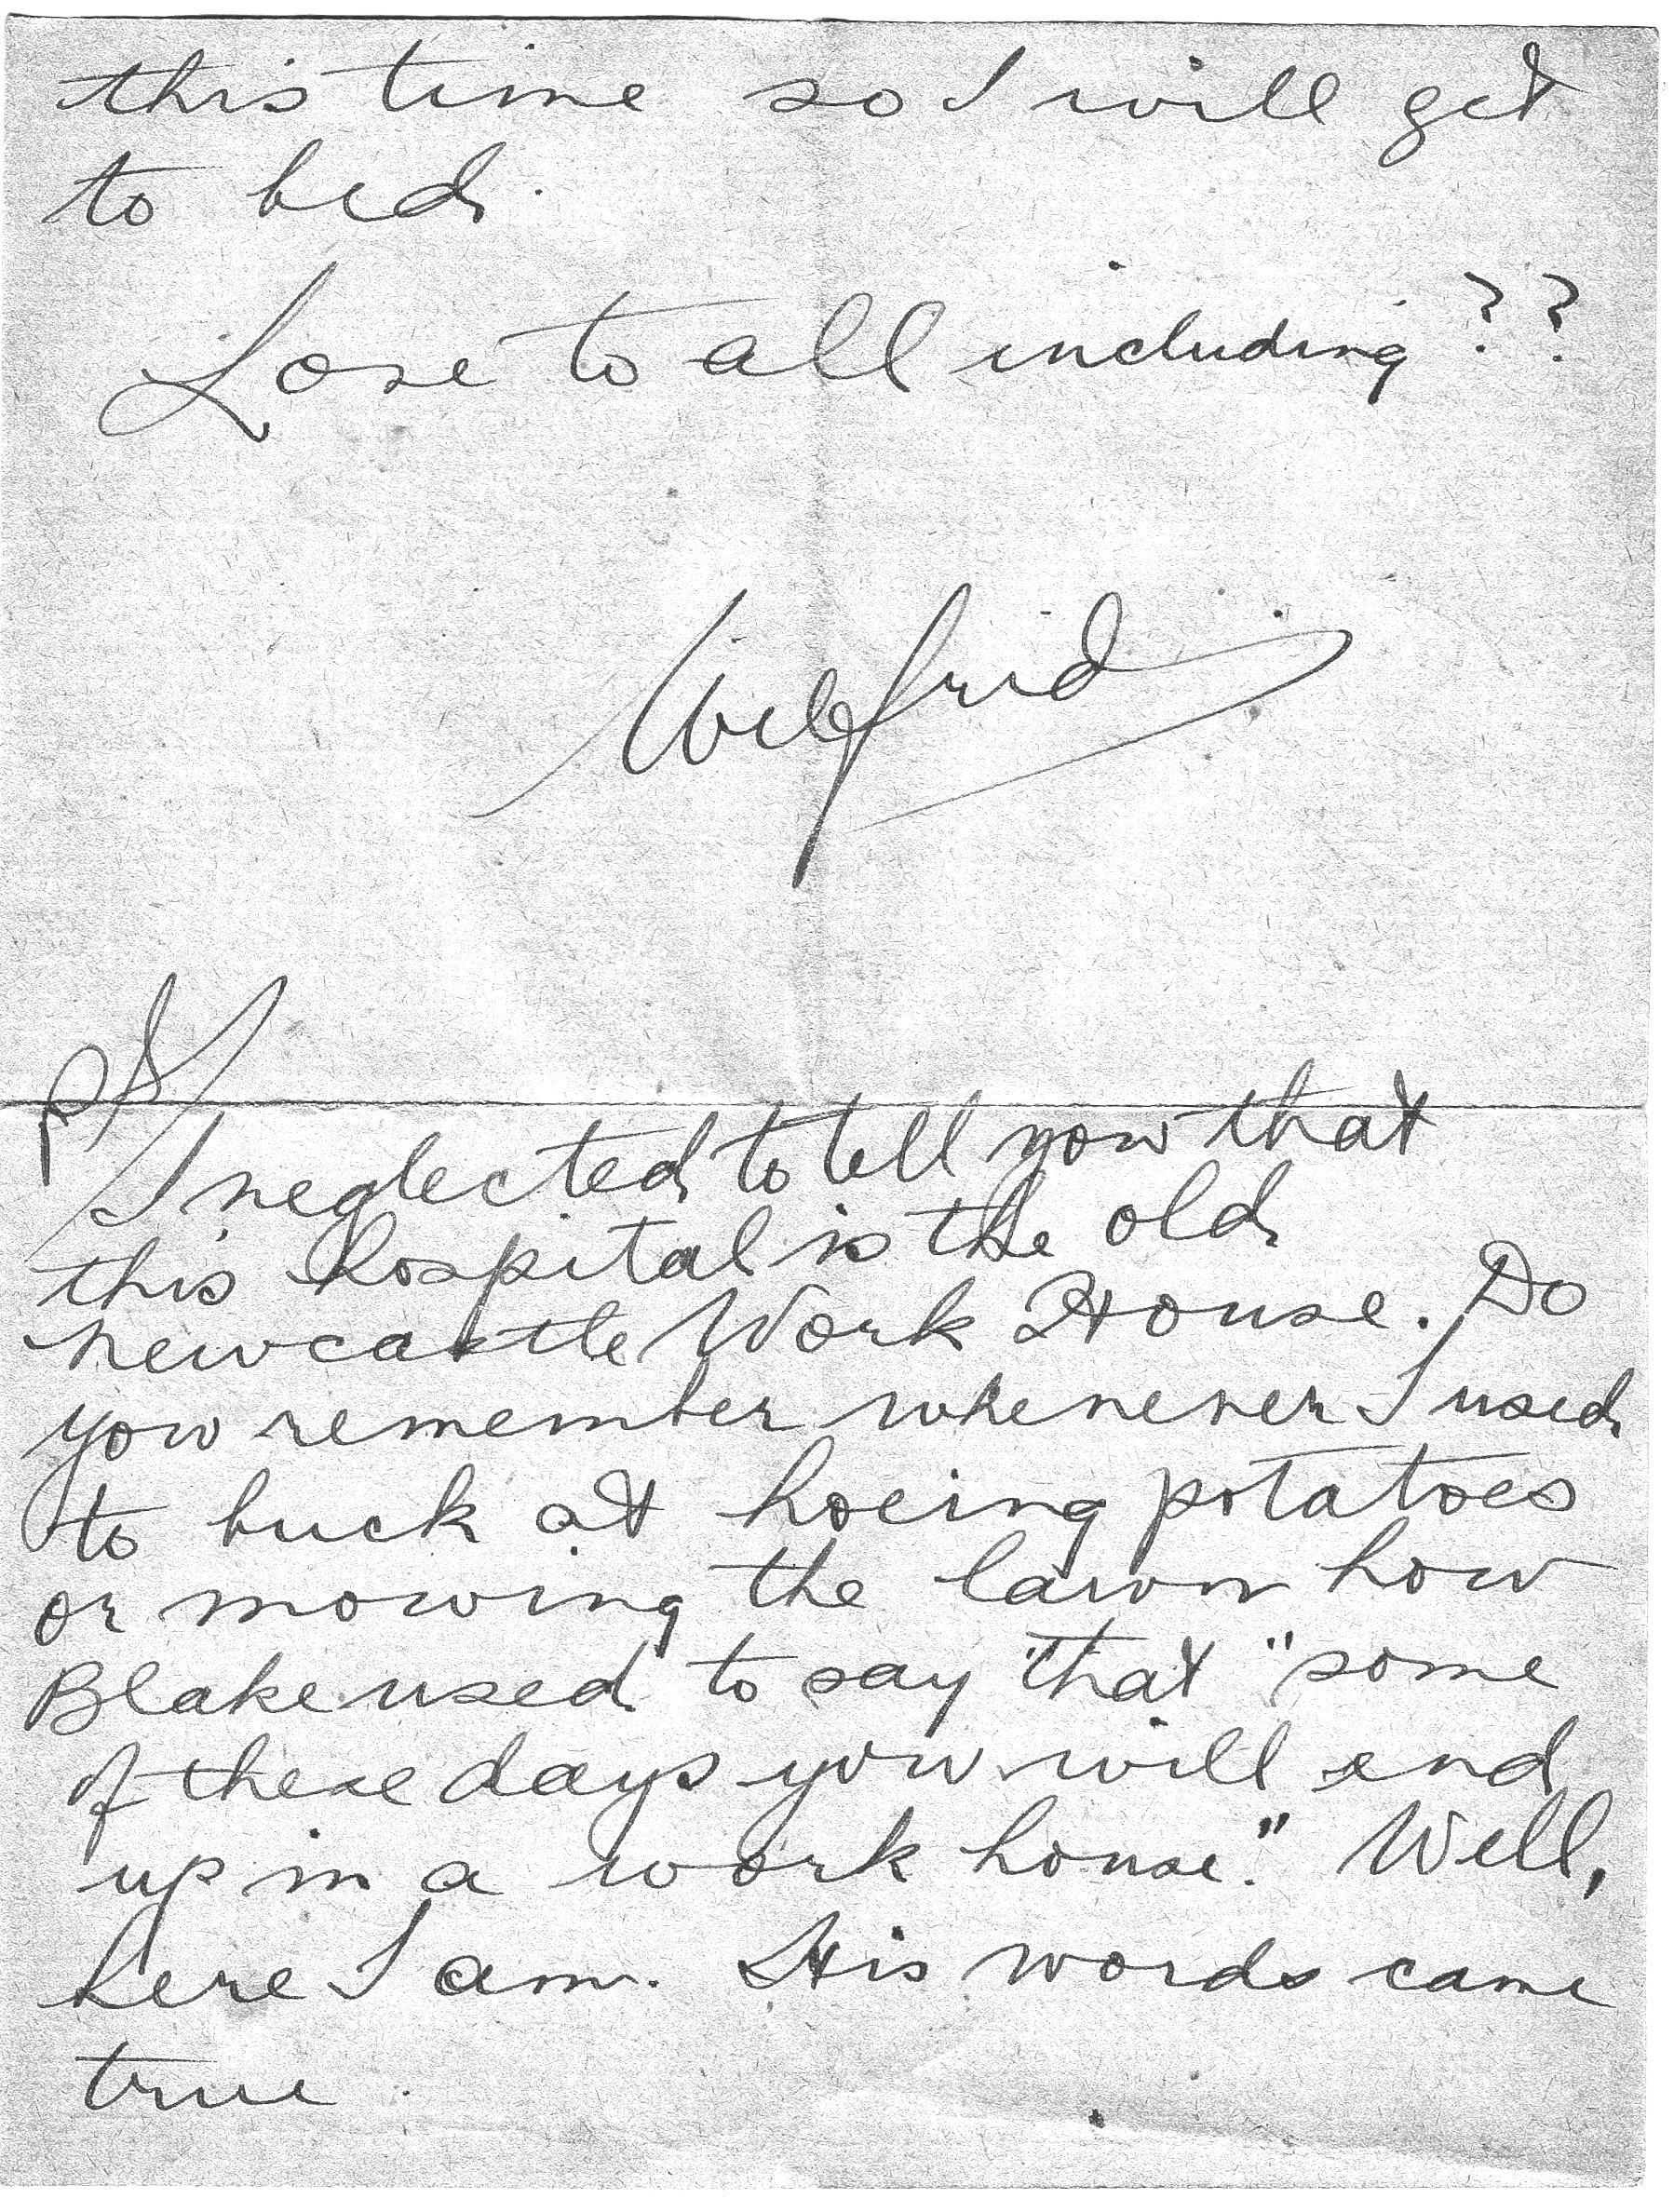 this time so I will get
to bed.
Love to all including ??
Wilfrid
PS/
I neglected to tell you that
this hospital is the old
newcastle Work House. Do
you remember whenever I used
to buck at hoeing potatoes
or mowing the lawn how
Blake used to say that "some
of these days you will end
up in a work house." Well,
here I am. His words came
true.